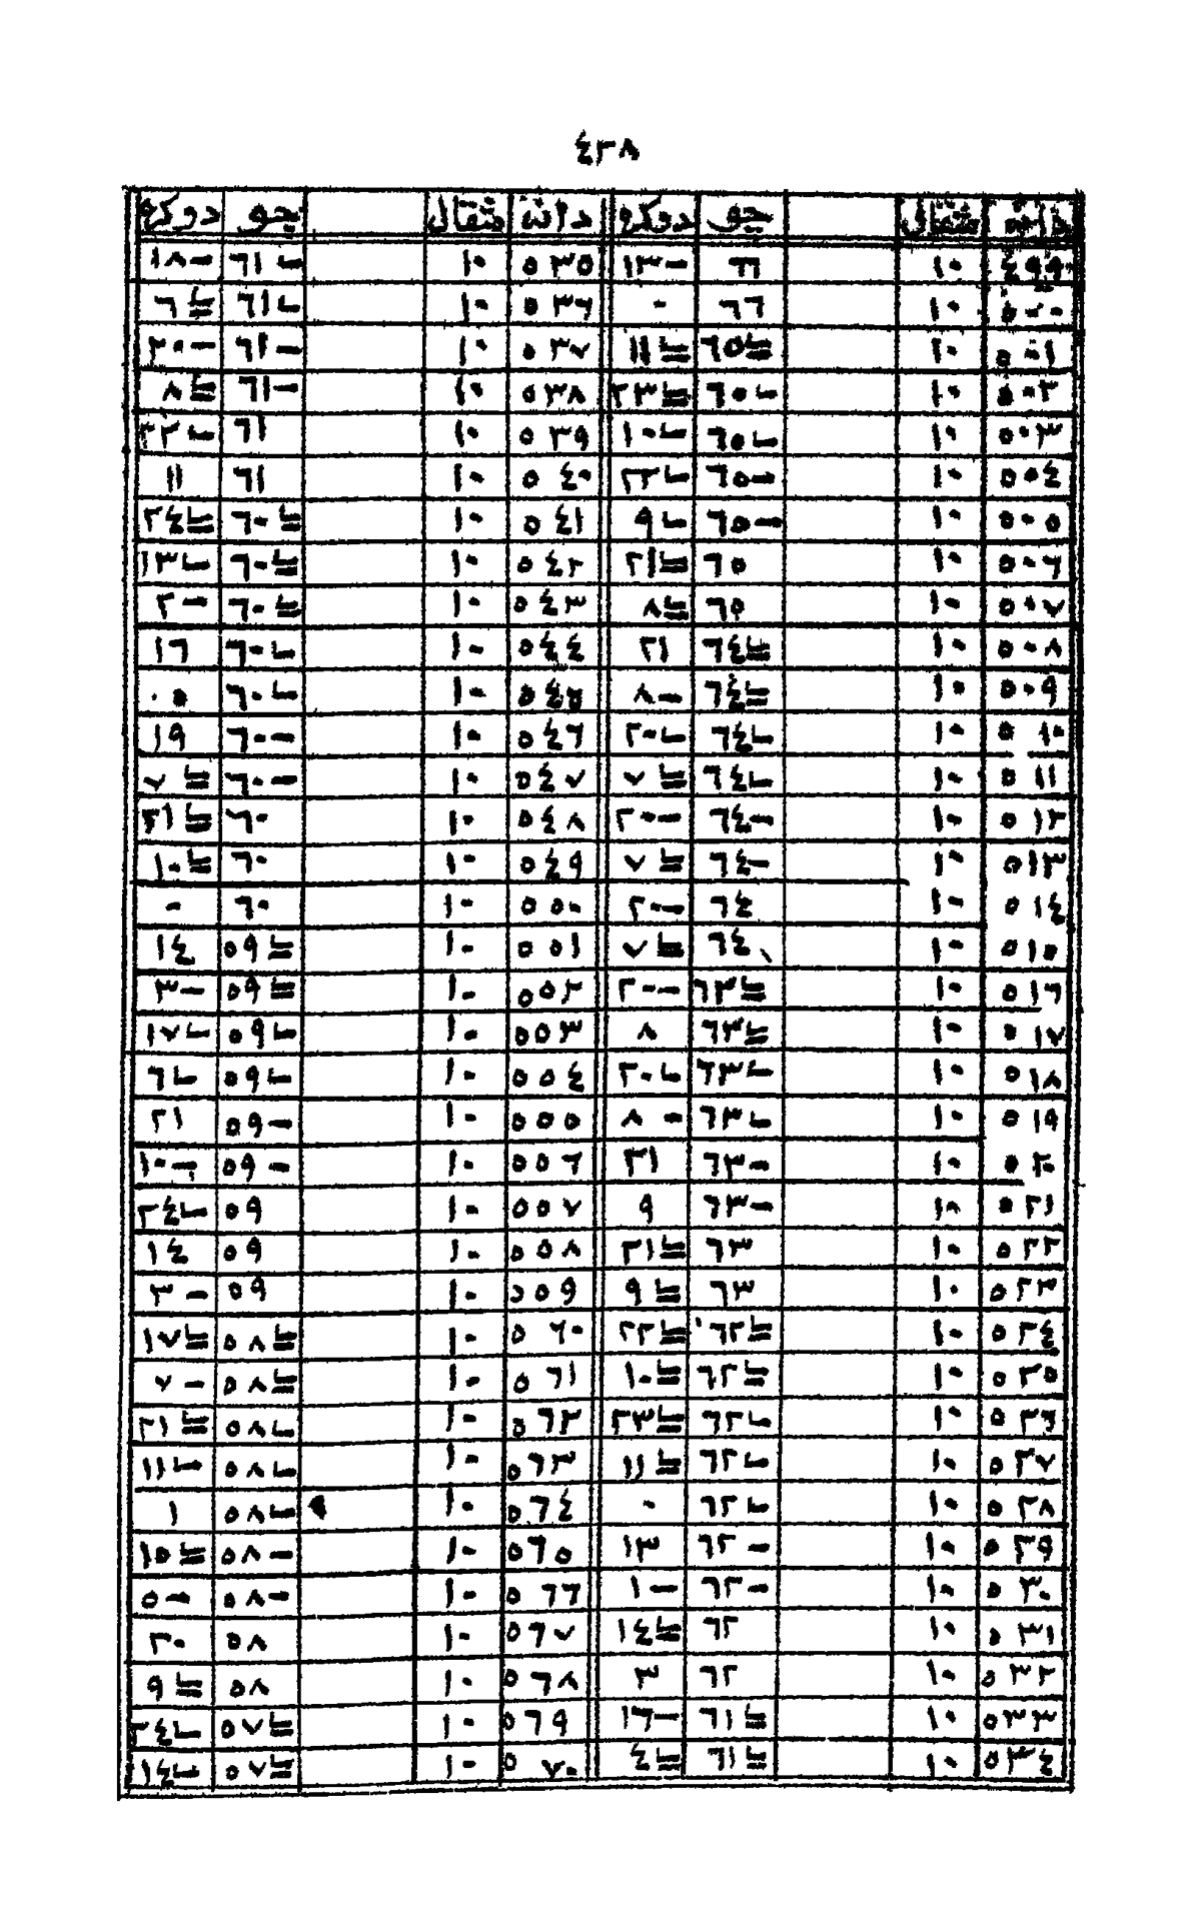 ٤٣٨
دانه مثقال جو دوكره دانة مثقال جو دوكره
٤٩٩ ١٠ ٦٦ ١٣- ٥٣٥ ١٠ ٦١∟ ١٨-
٥٠٠ ١٠ ٦٦ ٠ ٥٣٦ ١٠ ٦١∟ ٦⊨
٥٠١ ١٠ ٦٥⊨ ١١⊨ ٥٣٧ ١٠ ٦١- ٢٠-
٥٠٢ ١٠ ٦٥∟ ٢٣⊨ ٥٣٨ ١٠ ٦١- ٨⊨
٥٠٣ ١٠ ٦٥∟ ١٠∟ ٥٣٩ ١٠ ٦١ ٢٢∟
٥٠٤ ١٠ ٦٥- ٢٢∟ ٥٤٠ ١٠ ٦١ ١١
٥٠٥ ١٠ ٦٥- ٩∟ ٥٤١ ١٠ ٦٠⊨ ٢٤⊨
٥٠٦ ١٠ ٦٥ ٢١⊨ ٥٤٢ ١٠ ٦٠⊨ ١٣∟
٥٠٧ ١٠ ٦٥ ٨⊨ ٥٤٣ ١٠ ٦٠⊨ ٢-
٥٠٨ ١٠ ٦٤⊨ ٢١ ٥٤٤ ١٠ ٦٠∟ ١٦
٥٠٩ ١٠ ٦٤⊨ ٨- ٥٤٥ ١٠ ٦٠∟ ٥
٥١٠ ١٠ ٦٤∟ ٢٠∟ ٥٤٦ ١٠ ٦٠- ١٩
٥١١ ١٠ ٦٤∟ ٧⊨ ٥٤٧ ١٠ ٦٠- ٧⊨
٥١٢ ١٠ ٦٤- ٢٠- ٥٤٨ ١٠ ٦٠ ٢١⊨
٥١٣ ١٠ ٦٤- ٧⊨ ٥٤٩ ١٠ ٦٠ ١٠⊨
٥١٤ ١٠ ٦٤ ٢٠- ٥٥٠ ١٠ ٦٠ ٠
٥١٥ ١٠ ٦٤ ٧⊨ ٥٥١ ١٠ ٥٩⊨ ١٤
٥١٦ ١٠ ٦٣⊨ ٢٠- ٥٥٢ ١٠ ٥٩⊨ ٣-
٥١٧ ١٠ ٦٣⊨ ٨ ٥٥٣ ١٠ ٥٩∟ ١٧∟
٥١٨ ١٠ ٦٣∟ ٢٠∟ ٥٥٤ ١٠ ٥٩∟ ٦∟
٥١٩ ١٠ ٦٣∟ ٨- ٥٥٥ ١٠ ٥٩- ٢١
٥٢٠ ١٠ ٦٣- ٢١ ٥٥٦ ١٠ ٥٩- ١٠-
٥٢١ ١٠ ٦٣- ٩ ٥٥٧ ١٠ ٥٩ ٢٤∟
٥٢٢ ١٠ ٦٣ ٢١⊨ ٥٥٨ ١٠ ٥٩ ١٤
٥٢٣ ١٠ ٦٣ ٩⊨ ٥٥٩ ١٠ ٥٩ ٣-
٥٢٤ ١٠ ٦٢⊨ ٢٢⊨ ٥٦٠ ١٠ ٥٨⊨ ١٧⊨
٥٢٥ ١٠ ٦٢⊨ ١٠⊨ ٥٦١ ١٠ ٥٨⊨ ٧-
٥٢٦ ١٠ ٦٢∟ ٢٣⊨ ٥٦٢ ١٠ ٥٨∟ ٢١⊨
٥٢٧ ١٠ ٦٢∟ ١١⊨ ٥٦٣ ١٠ ٥٨∟ ١١∟
٥٢٨ ١٠ ٦٢∟ ٠ ٥٦٤ ١٠ ٥٨∟ ١
٥٢٩ ١٠ ٦٢- ١٣ ٥٦٥ ١٠ ٥٨- ١٥⊨
٥٣٠ ١٠ ٦٢- ١- ٥٦٦ ١٠ ٥٨- ٥-
٥٣١ ١٠ ٦٢ ١٤⊨ ٥٦٧ ١٠ ٥٨ ٢٠
٥٣٢ ١٠ ٦٢ ٣ ٥٦٨ ١٠ ٥٨ ٩⊨
٥٣٣ ١٠ ٦١⊨ ١٦- ٥٦٩ ١٠ ٥٧⊨ ٢٤∟
٥٣٤ ١٠ ٦١⊨ ٤⊨ ٥٧٠ ١٠ ٥٧⊨ ١٤∟